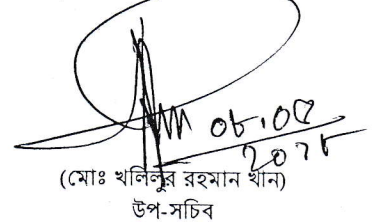 ০৮.০৫
২০১৮
(মোঃ খলিলুর রহমান খান)
উপ-সচিব